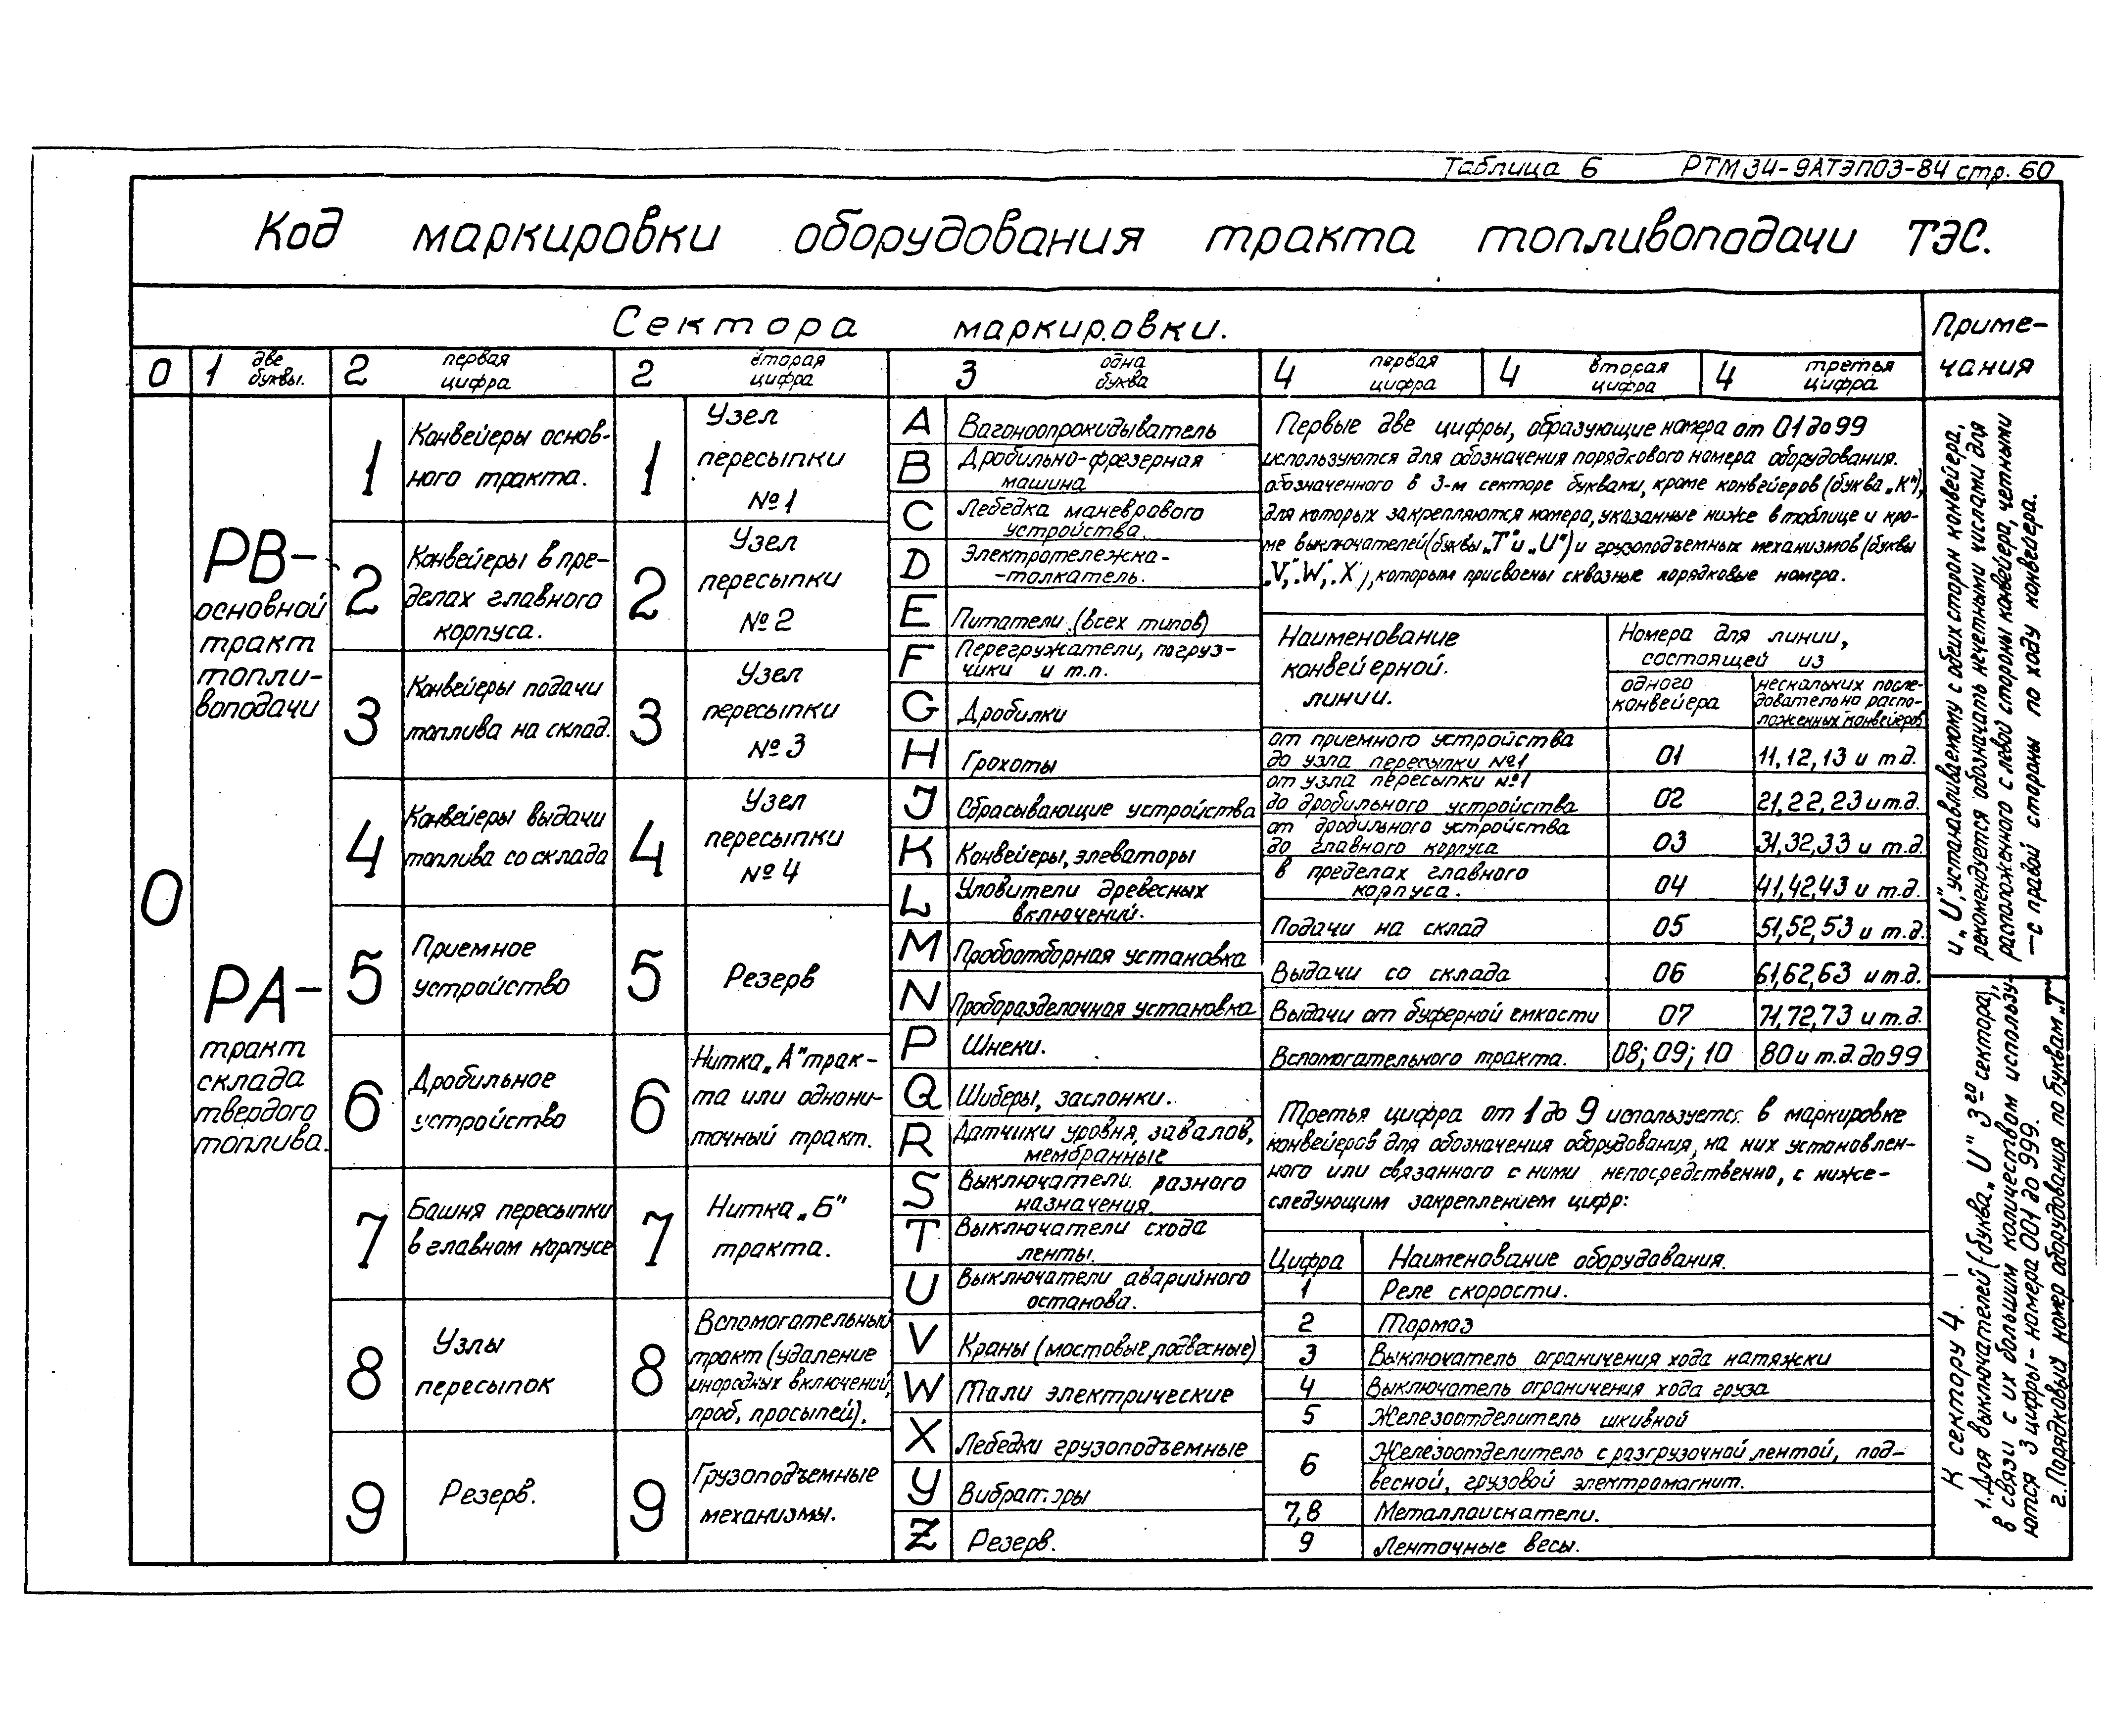 Таблица 6 РТМ 34-9АТЭП03-84 стр. 60
Код маркировки оборудования тракта топливоподачи ТЭС.
Сектора маркировки.
Приме-
чания
0
1 две
буквы.
2 первая
цифра
2 вторая
цифра
3 одна
буква
4 первая
цифра
4 вторая
цифра
4 третья
цифра
0
РВ-
основной
тракт
топли-
воподачи
РА-
тракт
склада
твердого
топлива.
1
Конвейеры основ-
ного тракта.
2
Конвейеры в пре-
делах главного
корпуса.
3
Конвейеры подачи
топлива на склад.
4
Конвейеры выдачи
топлива со склада
5
Приемное
устройство
6
Дробильное
устройство
7
Башня пересыпки
в главном корпусе
8
Узлы
пересыпок
9
Резерв.
1
Узел
пересыпки
№ 1
2
Узел
пересыпки
№ 2
3
Узел
пересыпки
№ 3
4
Узел
пересыпки
№ 4
5
Резерв
6
Нитка „А" трак-
та или однони-
точный тракт.
7
Нитка „Б"
тракта.
8
Вспомогательный
тракт (удаление
инородных включений,
проб, просыпей).
9
Грузоподъемные
механизмы.
A Вагоноопрокидыватель
B Дробильно-фрезерная
машина
C Лебедка маневрового
устройства.
D Электротележка-
-толкатель.
E Питатели (всех типов)
F Перегружатели, погруз-
чики и т.п.
G Дробилки
H Грохоты
J Сбрасывающие устройства
K Конвейеры, элеваторы
L Уловители древесных
включений.
M Пробоотборная установка
N Проборазделочная установка
P Шнеки.
Q Шиберы, заслонки.
R Датчики уровня, завалов,
мембранные
S Выключатели разного
назначения.
T Выключатели схода
ленты.
U Выключатели аварийного
останова.
V Краны (мостовые, подвесные)
W Тали электрические
X Лебедки грузоподъемные
Y Вибраторы
Z Резерв.
Первые две цифры, образующие номера от 01 до 99
используются для обозначения порядкового номера оборудования.
обозначенного в 3-м секторе буквами, кроме конвейеров (буква „К"),
для которых закрепляются номера, указанные ниже в таблице и кро-
ме выключателей (буквы „Т" и „U") и грузоподъемных механизмов (буквы
„V", „W", „X"), которым присвоены сквозные порядковые номера.
Наименование
конвейерной.
линии.
Номера для линии,
состоящей из
одного
конвейера
нескольких после-
довательно распо-
ложенных конвейеров
от приемного устройства
до узла пересыпки №1
01 11, 12, 13 и т.д.
от узла пересыпки №1
до дробильного устройства
02 21, 22, 23 и т.д.
от дробильного устройства
до главного корпуса
03 31, 32, 33 и т.д.
в пределах главного
корпуса.
04 41, 42, 43 и т.д.
Подачи на склад 05 51, 52, 53 и т.д.
Выдачи со склада 06 61, 62, 63 и т.д.
Выдачи от буферной емкости 07 71, 72, 73 и т.д.
Вспомогательного тракта. 08; 09; 10 80 и т.д. до 99
Третья цифра от 1 до 9 используется в маркировке
конвейеров для обозначения оборудования, на них установлен-
ного или связанного с ними непосредственно, с ниже-
следующим закреплением цифр:
Цифра Наименование оборудования.
1 Реле скорости.
2 Тормоз
3 Выключатель ограничения хода натяжки
4 Выключатель ограничения хода груза
5 Железоотделитель шкивной
6 Железоотделитель с разгрузочной лентой, под-
весной, грузовой электромагнит.
7,8 Металлоискатели.
9 Ленточные весы.
К сектору 4.
1. Для выключателей (буква „U" 3го сектора),
в связи с их большим количеством использу-
ются 3 цифры - номера 001 до 999.
2. Порядковый номер оборудования по буквам „Т"
и „U", устанавливаемому с обеих сторон конвейера,
рекомендуется обозначать нечетными числами для
расположенного с левой стороны конвейера, четными
— с правой стороны по ходу конвейера.